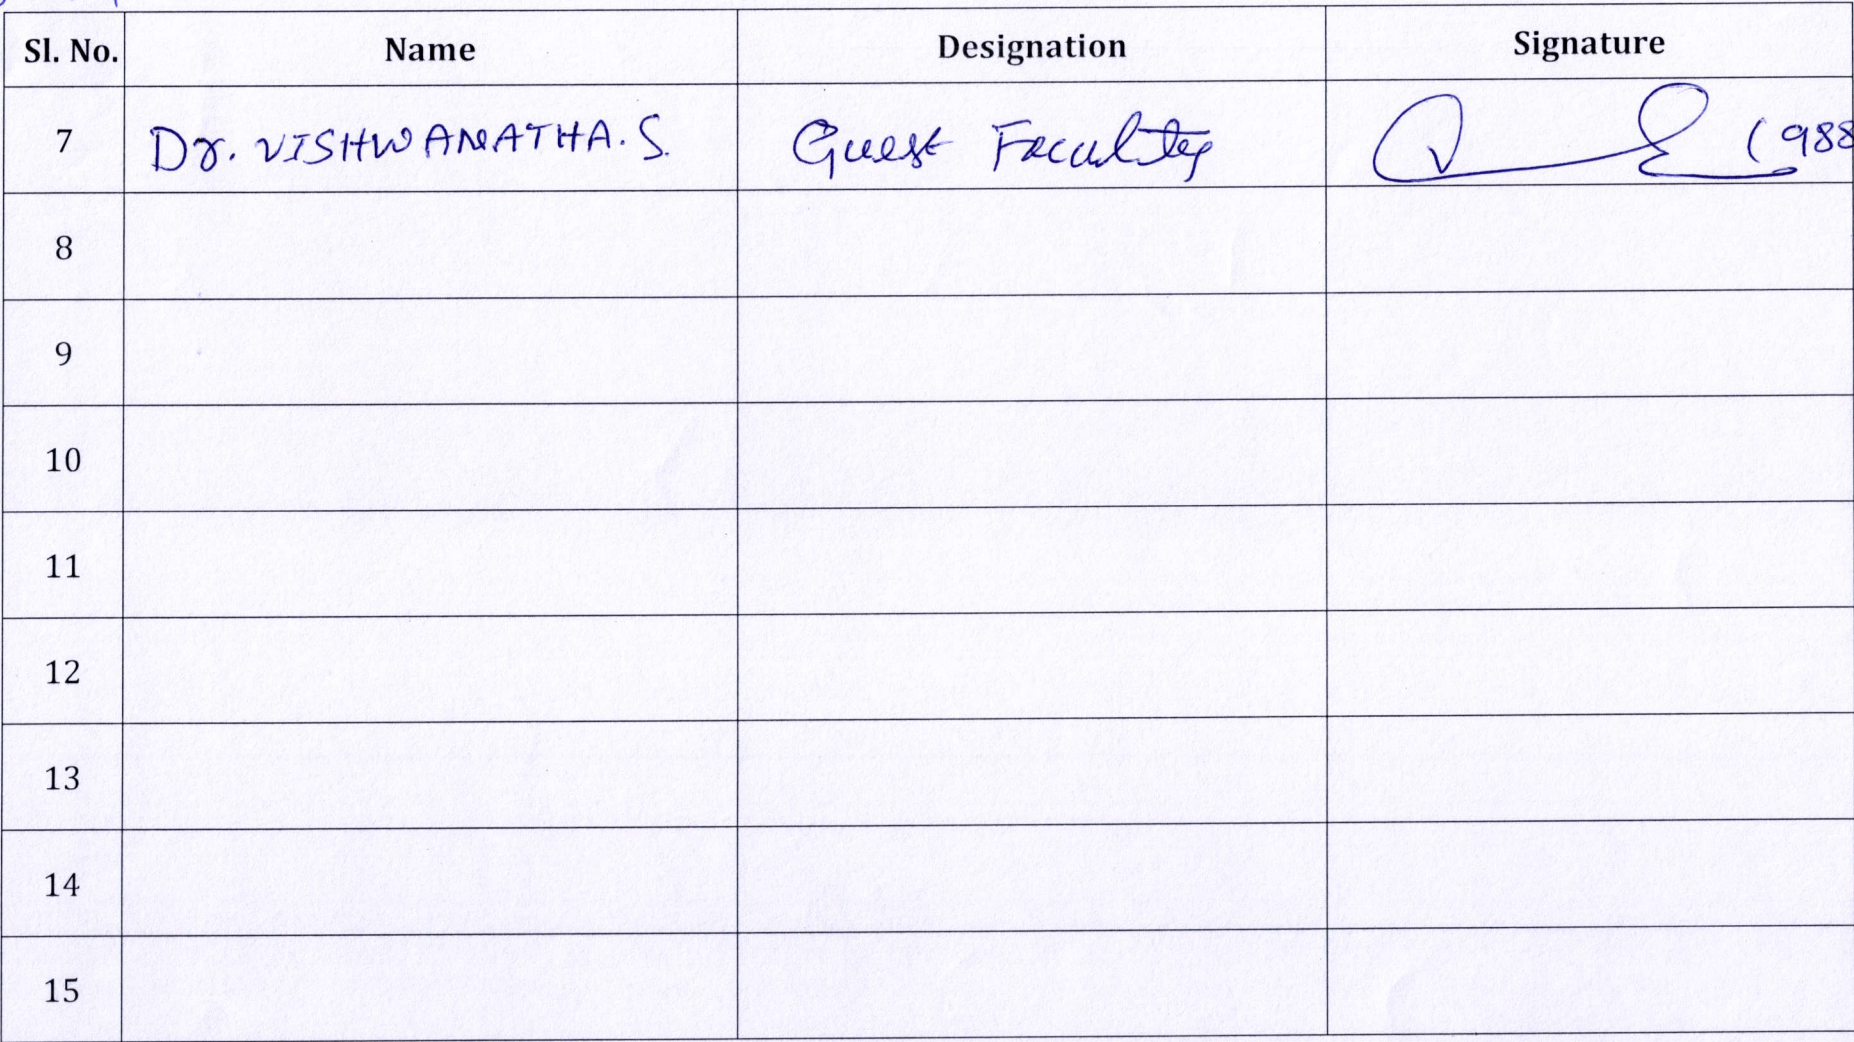 Sl. No. Name Designation Signature
7 Dr. VISHWANATHA. S. Guest Faculty (988
8
9
10
11
12
13
14
15